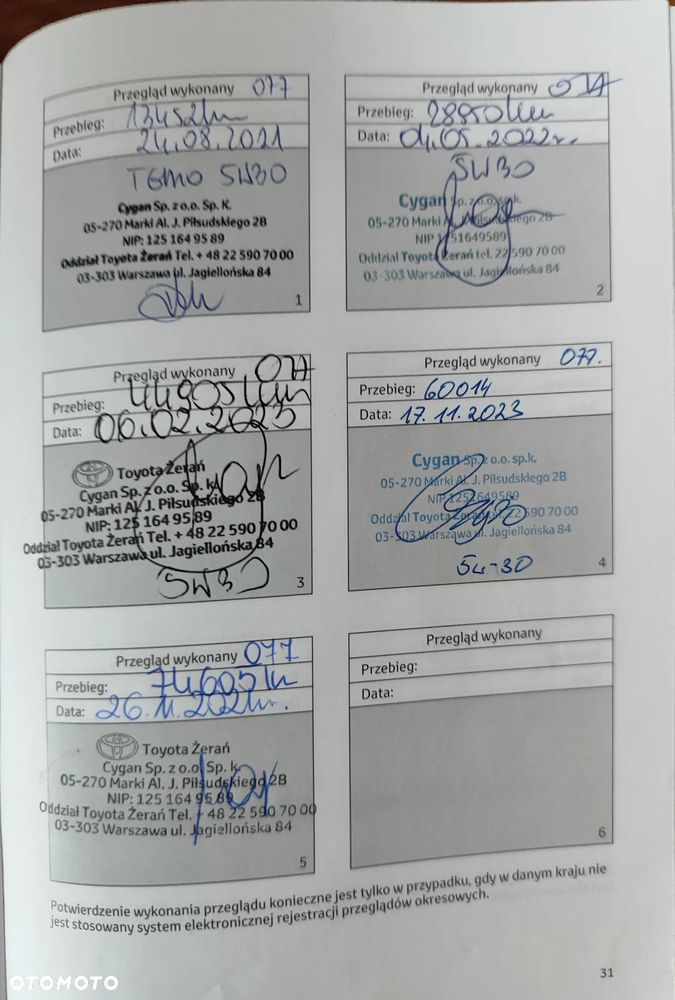 Przegląd wykonany 077
Przebieg: 13452km
Data: 24.08.2021
TGMO 5W30
Cygan Sp. z o.o. Sp. K.
05-270 Marki Al. J. Piłsudskiego 2B
NIP: 125 164 95 89
Oddział Toyota Żerań Tel. + 48 22 590 70 00
03-303 Warszawa ul. Jagiellońska 84
1
Przegląd wykonany 077
Przebieg: 28850km
Data: 04.05.2022r.
5W30
Cygan Sp. z o.o. sp.k.
05-270 Marki Al. J. Piłsudskiego 2B
NIP 1251649589
Oddział Toyota Żerań tel. 22 590 70 00
03-303 Warszawa ul. Jagiellońska 84
2
Przegląd wykonany 077
Przebieg: 44905km
Data: 06.02.2023
Toyota Żerań
Cygan Sp. z o.o. Sp. k.
05-270 Marki Al. J. Piłsudskiego 2B
NIP: 125 164 95 89
Oddział Toyota Żerań Tel. + 48 22 590 70 00
03-303 Warszawa ul. Jagiellońska 84
5W30
3
Przegląd wykonany 077.
Przebieg: 60014
Data: 17.11.2023
Cygan Sp. z o.o. sp.k.
05-270 Marki Al. J. Piłsudskiego 2B
NIP 1251649589
Oddział Toyota Żerań tel. 22 590 70 00
03-303 Warszawa ul. Jagiellońska 84
5W-30
4
Przegląd wykonany 077
Przebieg: 74605km
Data: 26.11.2024r.
Toyota Żerań
Cygan Sp. z o.o. Sp. k.
05-270 Marki Al. J. Piłsudskiego 2B
NIP: 125 164 95 89
Oddział Toyota Żerań Tel. + 48 22 590 70 00
03-303 Warszawa ul. Jagiellońska 84
5
Przegląd wykonany
Przebieg:
Data:
6
Potwierdzenie wykonania przeglądu konieczne jest tylko w przypadku, gdy w danym kraju nie
jest stosowany system elektronicznej rejestracji przeglądów okresowych.
31
OTOMOTO